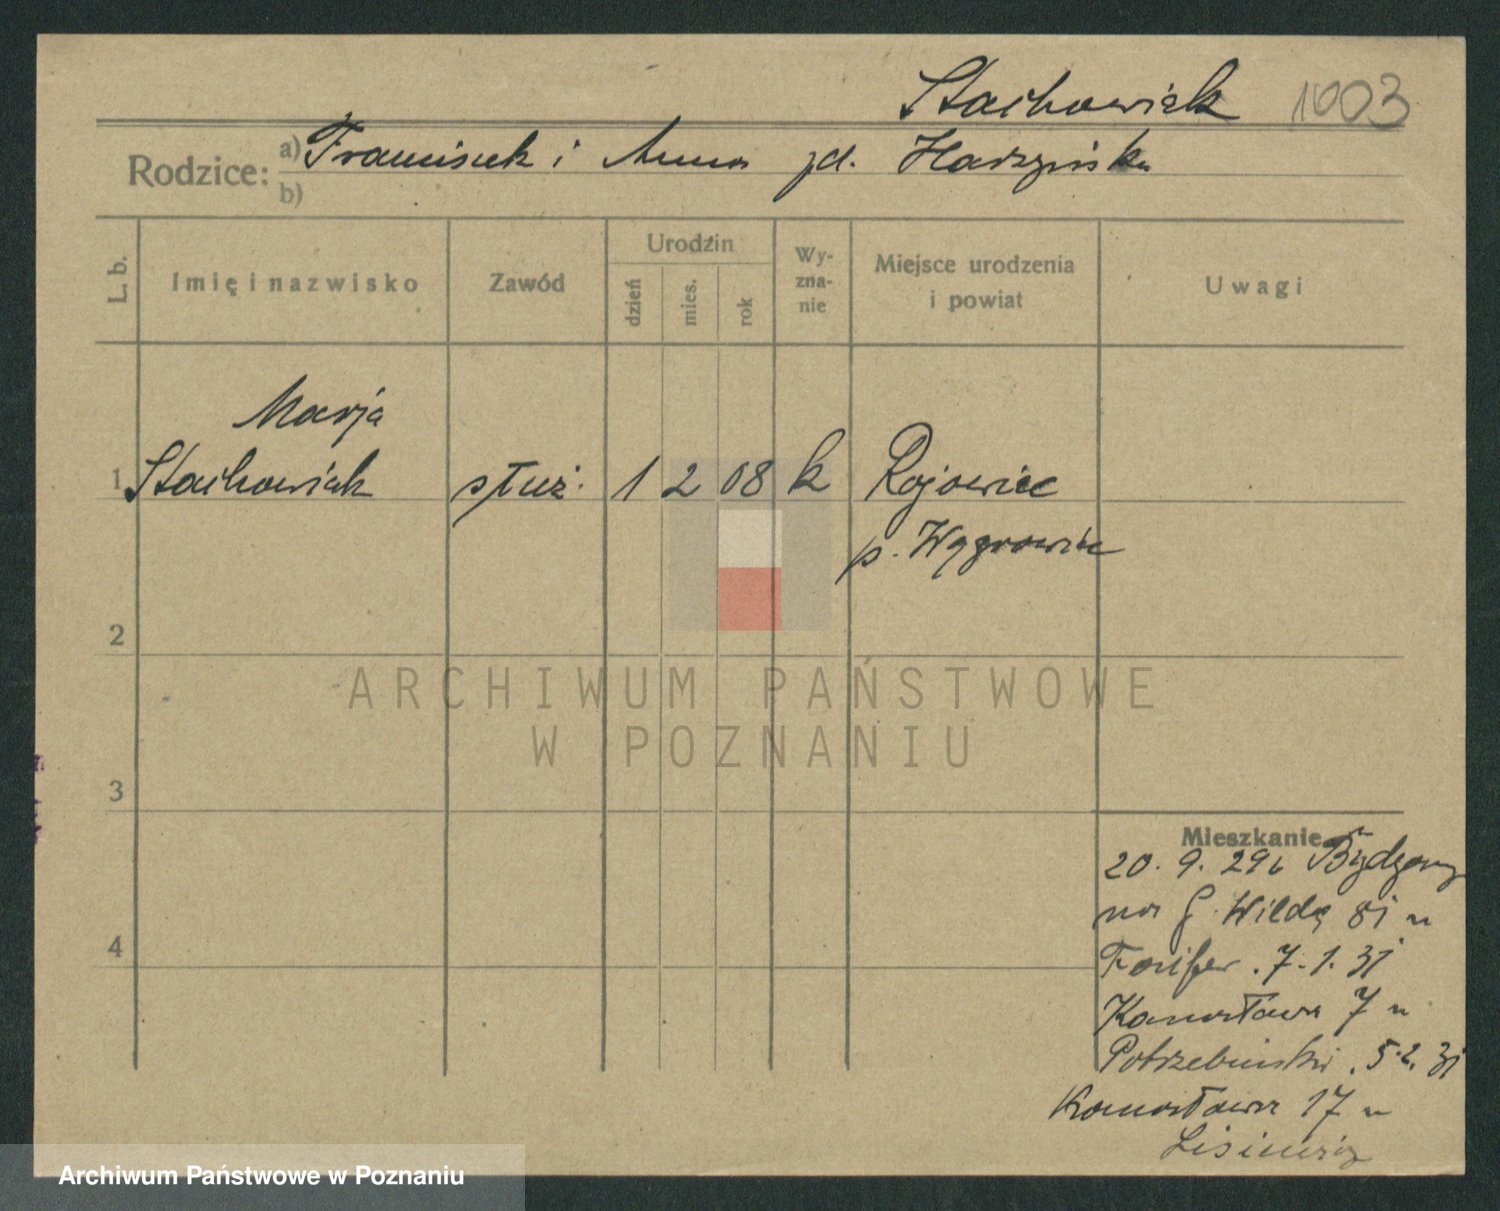 Stachowiak 1003
Rodzice: a) Franciszek i Anna zd. Harzyńska
b)
L. b. Imię i nazwisko Zawód Urodzin dzień mies. rok Wyznanie Miejsce urodzenia i powiat Uwagi
Marja
1 Stachowiak służ. 1 2 08 k Rojowiec
p. Wągrowiec
2
ARCHIWUM PAŃSTWOWE
W POZNANIU
3
Mieszkanie
20. 9. 29 z Bydgoszczy
na G. Wildę 81 u
4
7. 1. 31
Kanałowa 7 u
Potrzebiński. 5. 2. 31
Kanałowa 17 u
Archiwum Państwowe w Poznaniu